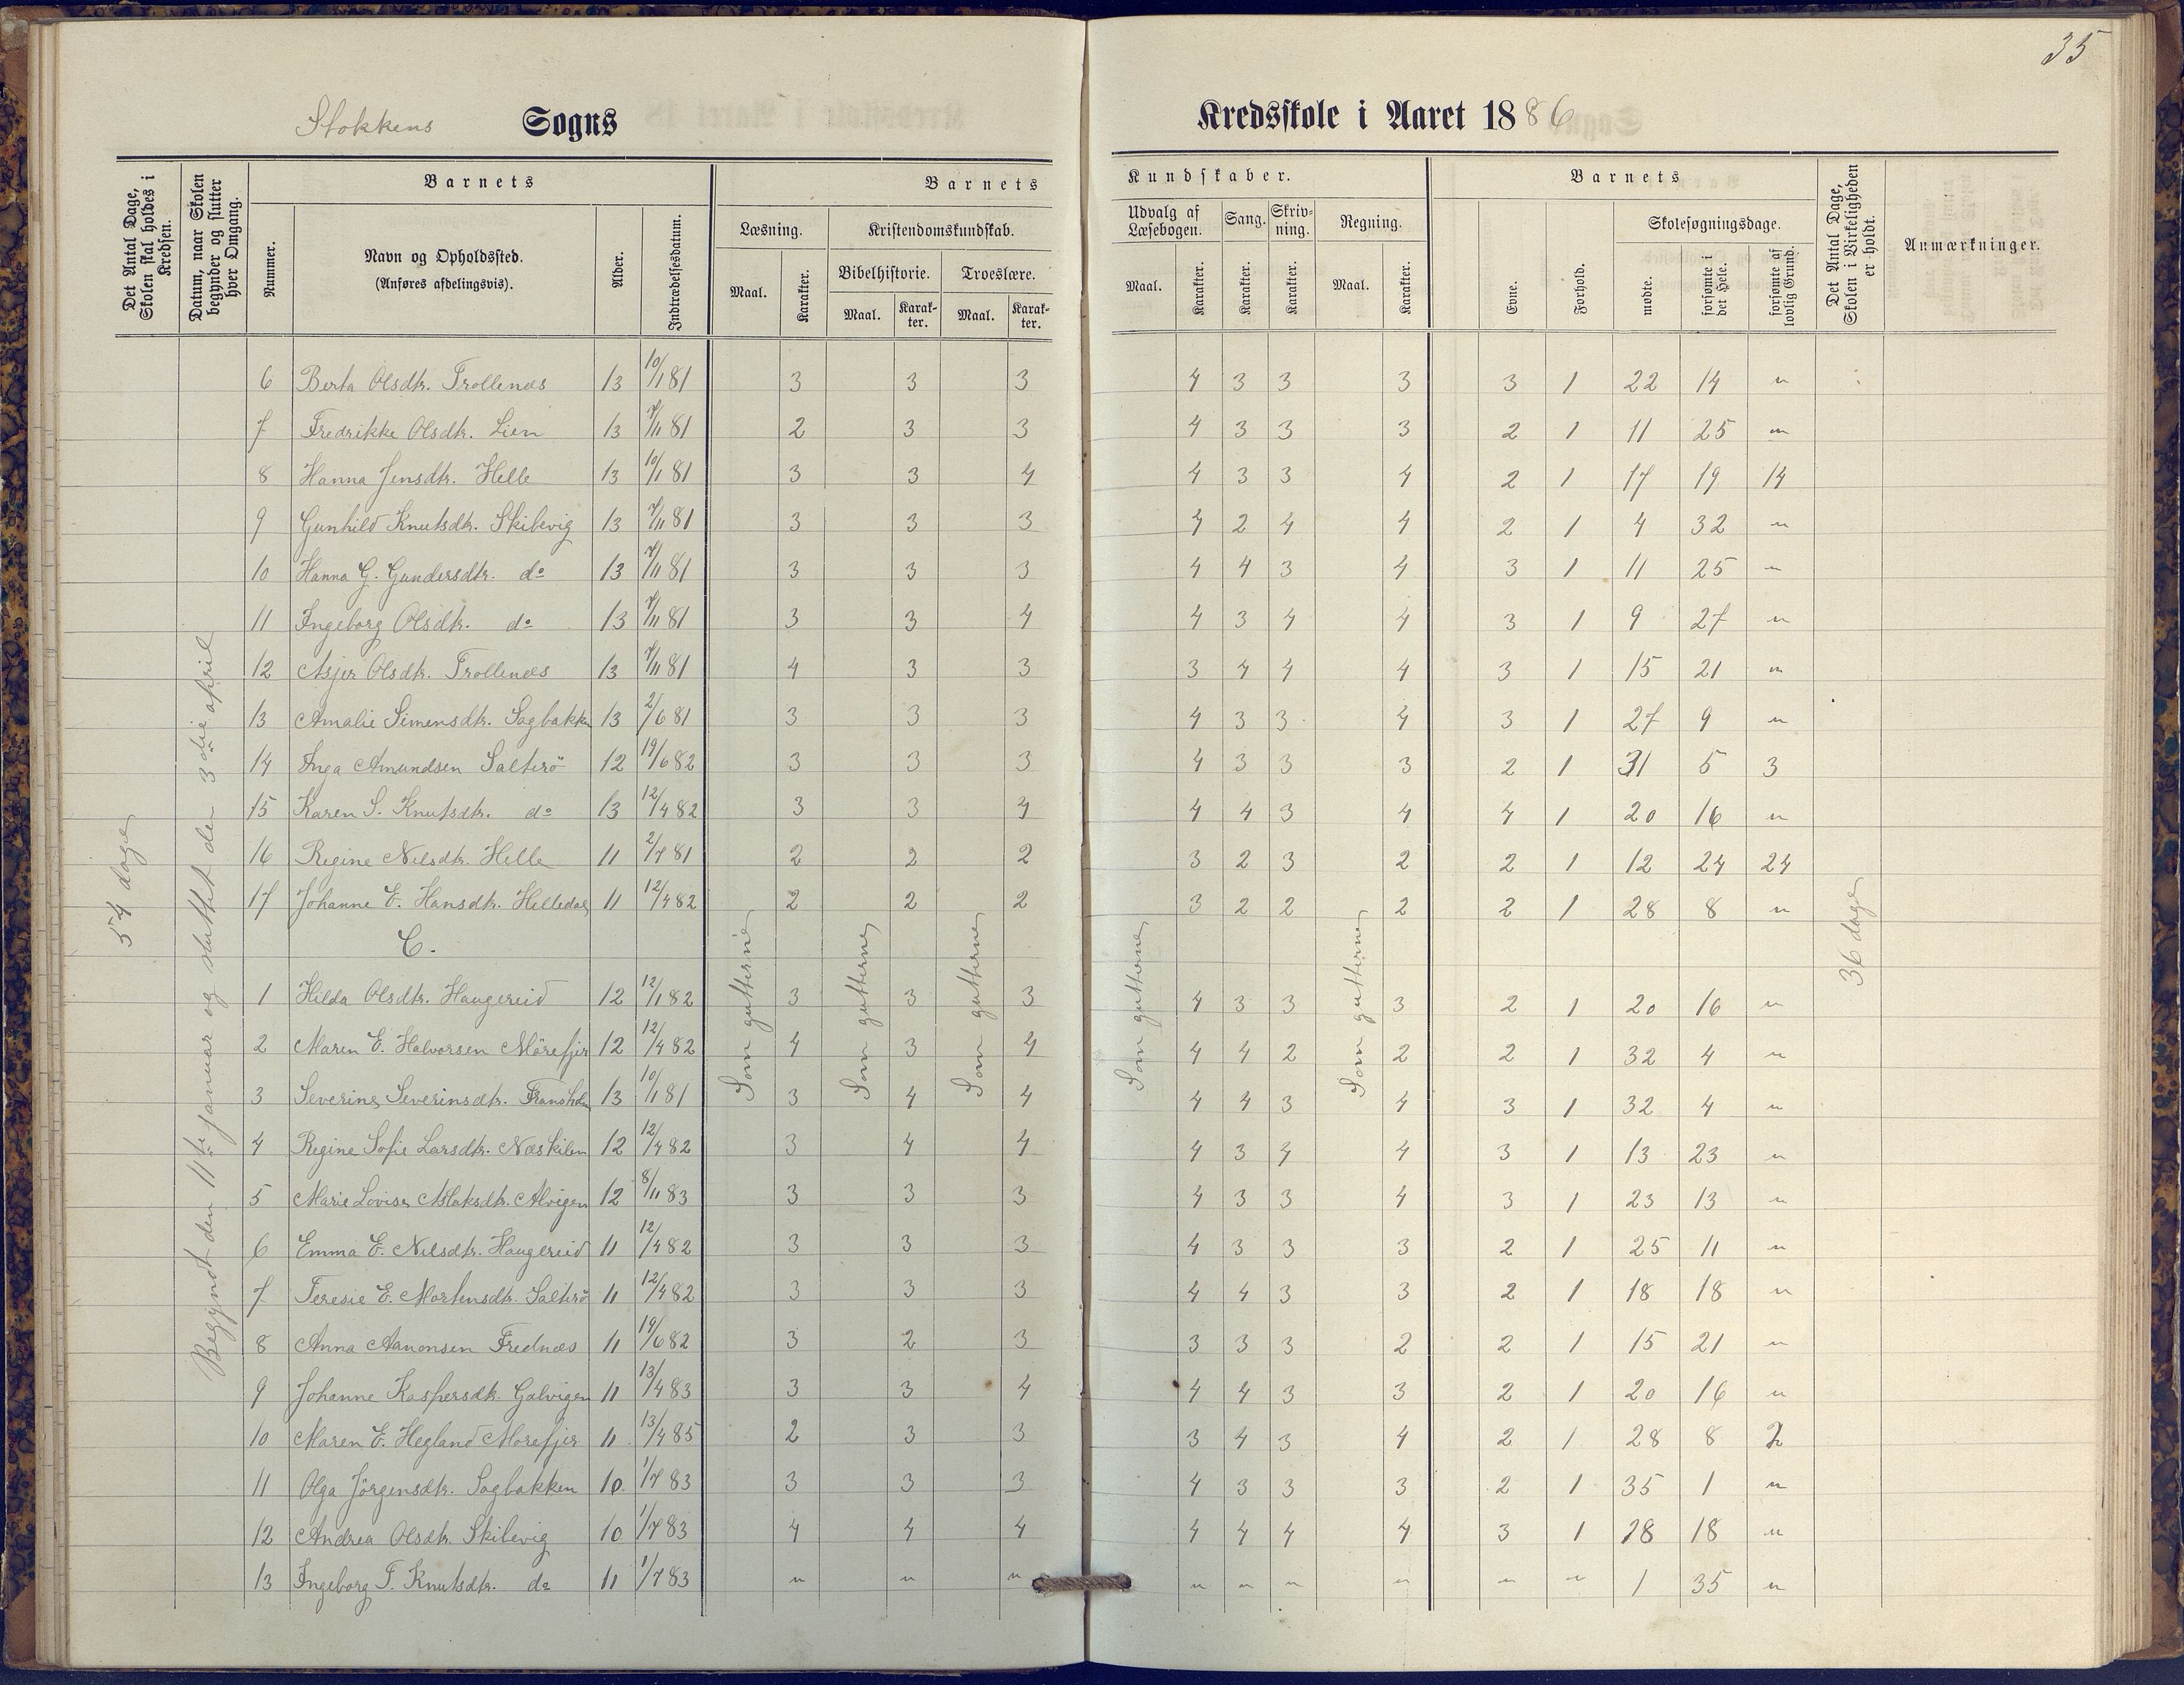 35
Stokkens Sogns Kredsskole i Aaret 1886
Det Antal Dage, Skolen skal holdes i Kredsen.
Datum, naar Skolen begynder og slutter hver Omgang.
Barnets
Nummer.
Navn og Opholdssted.
(Anføres afdelingsvis).
Alder.
Indtrædelsesdatum.
Barnets Kundskaber.
Læsning. Kristendomskundskab.
Bibelhistorie. Troeslære.
Maal. Karakter. Maal. Karakter. Maal. Karakter.
Udvalg af Læsebogen. Sang. Skrivning. Regning.
Maal. Karakter. Karakter. Karakter. Maal. Karakter.
Barnets
Evne. Forhold. Skolesøgningsdage.
mødte. forsømte i det Hele. forsømte af lovlig Grund.
Det Antal Dage, Skolen i Virkeligheden er holdt.
Anmærkninger.
54 dage
Begyndt den 11te januar og sluttet den 3die april
6 Berta Olsdtr. Trollenæs 13 10/1 81 3 3 3 4 3 3 3 3 1 22 14 "
7 Fredrikke Olsdtr. Lien 13 7/11 81 2 3 3 4 3 3 3 2 1 11 25 "
8 Hanna Jensdtr. Helle 13 10/1 81 3 3 4 4 3 3 4 2 1 17 19 14
9 Gunhild Knutsdtr. Skibevig 13 7/11 81 3 3 3 4 2 4 4 2 1 4 32 "
10 Hanna G. Gundersdtr. do 13 7/11 81 3 3 3 4 4 3 4 3 1 11 25 "
11 Ingeborg Olsdtr. do 13 7/11 81 3 3 4 4 3 4 4 3 1 9 27 "
12 Asjer Olsdtr. Trollenæs 13 7/11 81 4 3 3 3 4 4 4 3 1 15 21 "
13 Amalie Simensdtr. Sagbakke 13 2/6 81 3 3 3 4 3 3 4 3 1 27 9 "
14 Inga Amundsen Salterö 12 19/6 82 3 3 3 4 3 3 3 2 1 31 5 3
15 Karen S. Knutsdtr. do 13 12/4 82 3 3 4 4 4 3 4 4 1 20 16 "
16 Regine Nilsdtr. Helle 11 2/7 81 2 2 2 3 2 3 2 2 1 12 24 24
17 Johanne E. Hansdtr. Helledal 11 12/4 82 2 2 2 3 2 2 2 2 1 28 8 "
C.
Som gutterne Som gutterne Som gutterne Som gutterne Som gutterne
36 dage
1 Hilda Olsdtr. Haugereid 12 12/1 82 3 3 3 4 3 3 3 2 1 20 16 "
2 Maren E. Halvorsen Mörefjer 12 12/4 82 4 3 4 4 4 2 2 2 1 32 4 "
3 Severine Severinsdtr. Fransholm 13 10/1 81 3 4 4 4 4 3 4 3 1 32 4 "
4 Regine Sofie Larsdtr. Næskilen 12 12/4 82 3 4 4 4 3 4 4 3 1 13 23 "
5 Marie Lovise Aslaksdtr. Alvigen 12 8/11 83 3 3 3 4 3 3 4 3 1 23 13 "
6 Emma E. Nilsdtr. Haugereid 11 12/4 82 3 3 3 4 3 3 3 2 1 25 11 "
7 Teresie E. Mortensdtr. Salterö 11 12/4 82 3 3 3 4 4 3 3 2 1 18 18 "
8 Anna Aanonsen Frednæs 11 19/6 82 3 2 3 3 3 3 2 2 1 15 21 "
9 Johanne Kaspersdtr. Galvigen 11 13/4 83 3 3 4 4 4 3 3 2 1 20 16 "
10 Maren E. Hegland Morefjer 11 13/4 85 2 3 3 3 4 3 4 2 1 28 8 2
11 Olga Jörgensdtr. Sagbakken 10 1/7 83 3 3 3 4 3 3 3 2 1 35 1 "
12 Andrea Olsdtr. Skibevig 10 1/7 83 4 4 4 4 4 4 4 3 1 18 18 "
13 Ingeborg T. Knutsdtr. do 11 1/7 83 " " " " " " " " " 1 35 "